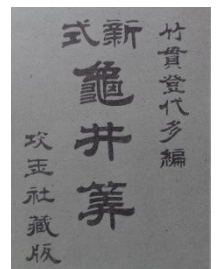 竹貫登代多編
新式
龜井筭
攻玉社藏版